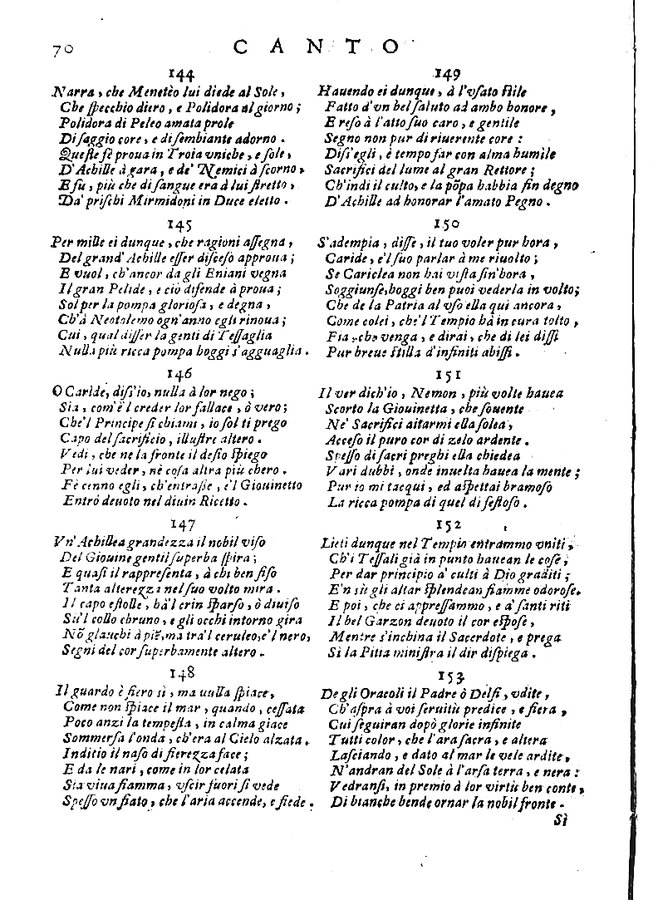 70 CANTO
144
Narra, che Menetèo lui diede al Sole,
Che specchio diero, e Polidora al giorno;
Polidora di Peleo amata prole
Di saggio core, e di sembiante adorno.
Queste sè proua in Troia vniche, e sole,
D'Achille à gara, e de' Nemici à scorno,
E fu, più che di sangue era à lui stretto,
Da' prischi Mirmidoni in Duce eletto.
145
Per mille ei dunque, che ragioni assegna,
Del grand' Achille esser disceso approua;
E vuol, ch'ancor da gli Eniani vegna
Il gran Pelide, e ciò difende à proua;
Sol per la pompa gloriosa, e degna,
Ch'à Neotolemo ogn'anno egli rinoua;
Cui, qual disser la genti di Tessaglia
Nulla più ricca pompa hoggi s'agguaglia.
146
O Caride, diss'io, nulla à lor nego;
Sia, com'è l creder lor fallace, ò vero;
Che'l Principe si chiami, io sol ti prego
Capo del sacrificio, illustre altero.
Vedi, che ne la fronte il desio spiego
Per lui veder, nè cosa altra più chero.
Fè cenno egli, ch'entrasse, e'l Giouinetto
Entrò deuoto nel diuin Ricetto.
147
Vn' Achillea grandezza il nobil viso
Del Giouine gentil superba spira;
E quasi il rappresenta, à chi ben fiso
Tanta alterezza nel suo volto mira.
Il capo estolle, hà'l crin sparso, ò diuiso
Su'l collo ebruno, e gli occhi intorno gira
Nõ glauchi à piẽ, ma tra'l ceruleo, e'l nero,
Segni del cor superbamente altero.
148
Il guardo è fiero sì, ma uulla spiace,
Come non spiace il mar, quando, cessata
Poco anzi la tempesta, in calma giace
Sommersa l'onda, ch'era al Cielo alzata.
Inditio il naso di fierezza face;
E da le nari, come in lor celata
Sia viua fiamma, vscir fuori si vede
Spesso vn fiato, che l'aria accende, e fiede.
149
Hauendo ei dunque, à l'vsato stile
Fatto d'vn bel saluto ad ambo honore,
E reso à l'atto suo caro, e gentile
Segno non pur di riuerente core:
Diss'egli, è tempo far con alma humìle
Sacrifici del lume al gran Rettore;
Ch'indi il culto, e la põpa habbia fin degno
D'Achille ad honorar l'amato Pegno.
150
S'adempia, disse, il tuo voler pur hora,
Caride, e'l suo parlar à me riuolto;
Se Cariclea non hai vista sin'hora,
Soggiunse, hoggi ben puoi vederla in volto;
Che de la Patria al vso ella qui ancora,
Come colei, che'l Tempio hà in cura tolto,
Fia, che venga, e dirai, che di lei dissi
Pur breue stilla d'infiniti abissi.
151
Il ver dich'io, Nemon, più volte hauea
Scorto la Giouinetta, che souente
Ne' Sacrifici aitarmi ella solea,
Acceso il puro cor di zelo ardente.
Spesso di sacri preghi ella chiedea
Vari dubbi, onde inuelta hauea la mente;
Pur io mi tacqui, ed aspettai bramoso
La ricca pompa di quel dì festoso.
152
Lieti dunque nel Tempio entrammo vniti,
Ch'i Tessali già in punto hauean le cose,
Per dar principio à culti à Dio graditi;
E'n sù gli altar splendean fiamme odorose.
E poi, che ci appressammo, e à santi riti
Il bel Garzon deuoto il cor espose,
Mentre s'inchina il Sacerdote, e prega
Sì la Pitia ministra il dir dispiega.
153
De gli Oracoli il Padre ò Delfi, vdite,
Ch'aspra à voi seruitù predice, e fiera,
Cui seguiran dopò glorie infinite
Tutti color, che l'ara sacra, e altera
Lasciando, e dato al mar le vele ardite,
N'andran del Sole à l'arsa terra, e nera:
Vedransi, in premio à lor virtù ben conte,
Di bianche bende ornar la nobil fronte.
Sì